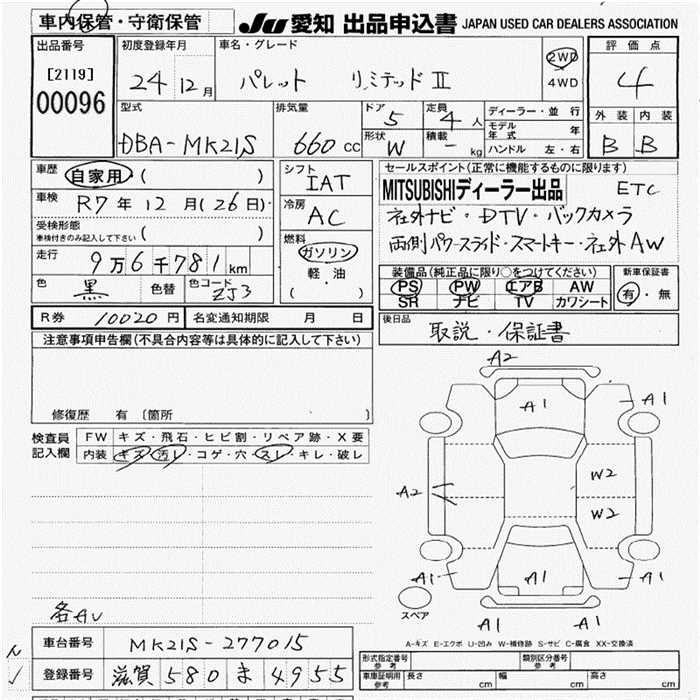 車内保管・守衛保管
JU 愛知 出品申込書 JAPAN USED CAR DEALERS ASSOCIATION
出品番号
[2119]
00096
初度登録年月
24 12月
車名・グレード
パレット リミテッドⅡ
2WD
4WD
評価点
4
外装 内装
B B
型式
DBA-MK21S
排気量
660 cc
ドア
5
形状
W
定員
4人
積載
- kg
ディーラー・並行
モデル年式 年
ハンドル 左・右
車歴
自家用 ( )
車検
R7年12月(26日)
受検形態
車検付きのみ記入して下さい ( )
走行
9万6千781km
色
黒
色替
色コード
ZJ3
シフト
IAT
冷房
AC
燃料
ガソリン
軽・油
( )
セールスポイント(正常に機能するものに限ります)
MITSUBISHIディーラー出品 ETC
社外ナビ・DTV・バックカメラ
両側パワースライド・スマートキー・社外AW
装備品(純正品に限り○をつけてください)
PS PW エアB AW
SR ナビ TV カワシート
新車保証書
有・無
R券 10020円
名変通知期限 月 日
後日品
取説・保証書
注意事項申告欄(不具合内容等は具体的に記入して下さい)
修復歴 有〔箇所 〕
検査員記入欄
FW キズ・飛石・ヒビ割・リペア跡・X要
内装 キズ・汚レ・コゲ・穴・スレ・キレ・破レ
A2
A1
A1
A1
W2
W2
A2
A1
A1
A1
A1
スペア
各AU
A-キズ E-エクボ U-凹み W-補修跡 S-サビ C-腐食 XX-交換済
車台番号
MK21S-277015
登録番号
滋賀 580 ま 4955
型式指定番号
参考
類別区分番号
参考
車庫証明用
参考
長さ cm
幅 cm
高さ cm